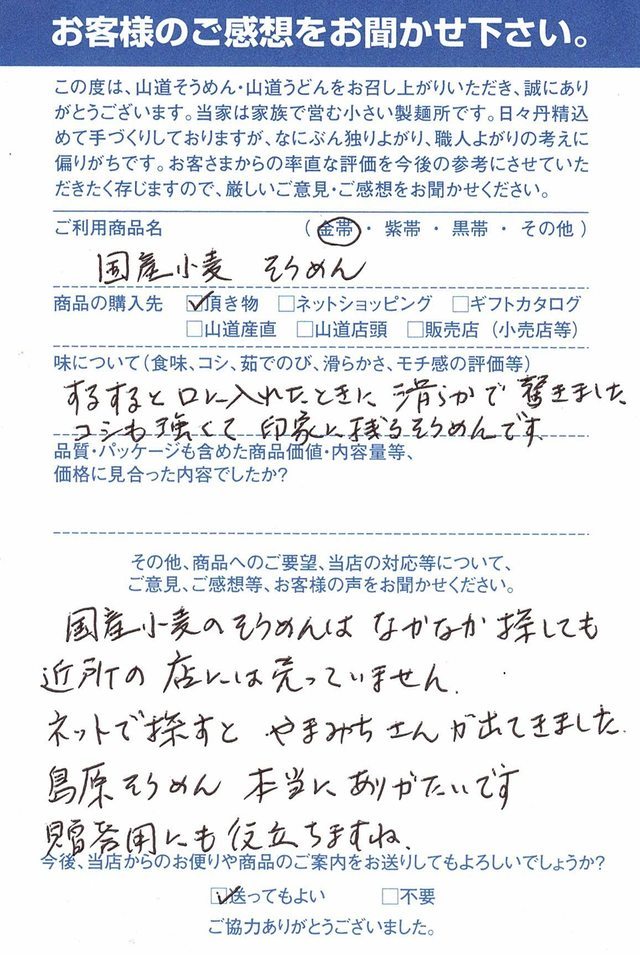 お客様のご感想をお聞かせ下さい。
この度は、山道そうめん・山道うどんをお召し上がりいただき、誠にあり
がとうございます。当家は家族で営む小さい製麺所です。日々丹精込
めて手づくりしておりますが、なにぶん独りよがり、職人よがりの考えに
偏りがちです。お客さまからの率直な評価を今後の参考にさせていた
だきたく存じますので、厳しいご意見・ご感想をお聞かせください。
ご利用商品名 （ 金帯 ・ 紫帯 ・ 黒帯 ・ その他 ）
国産小麦 そうめん
商品の購入先 ☑頂き物 □ネットショッピング □ギフトカタログ
□山道産直 □山道店頭 □販売店（小売店等）
味について（食味、コシ、茹でのび、滑らかさ、モチ感の評価等）
するすると口に入れたときに 滑らかで 驚きました
コシも強くて 印象に残るそうめんです
品質・パッケージも含めた商品価値・内容量等、
価格に見合った内容でしたか?
その他、商品へのご要望、当店の対応等について、
ご意見、ご感想等、お客様の声をお聞かせください。
国産小麦のそうめんは なかなか 探しても
近所の 店には売っていません.
ネットで探すと やまみちさんが出てきました.
島原そうめん 本当にありがたいです
贈答用にも役立ちますね.
今後、当店からのお便りや商品のご案内をお送りしてもよろしいでしょうか?
☑送ってもよい □不要
ご協力ありがとうございました。